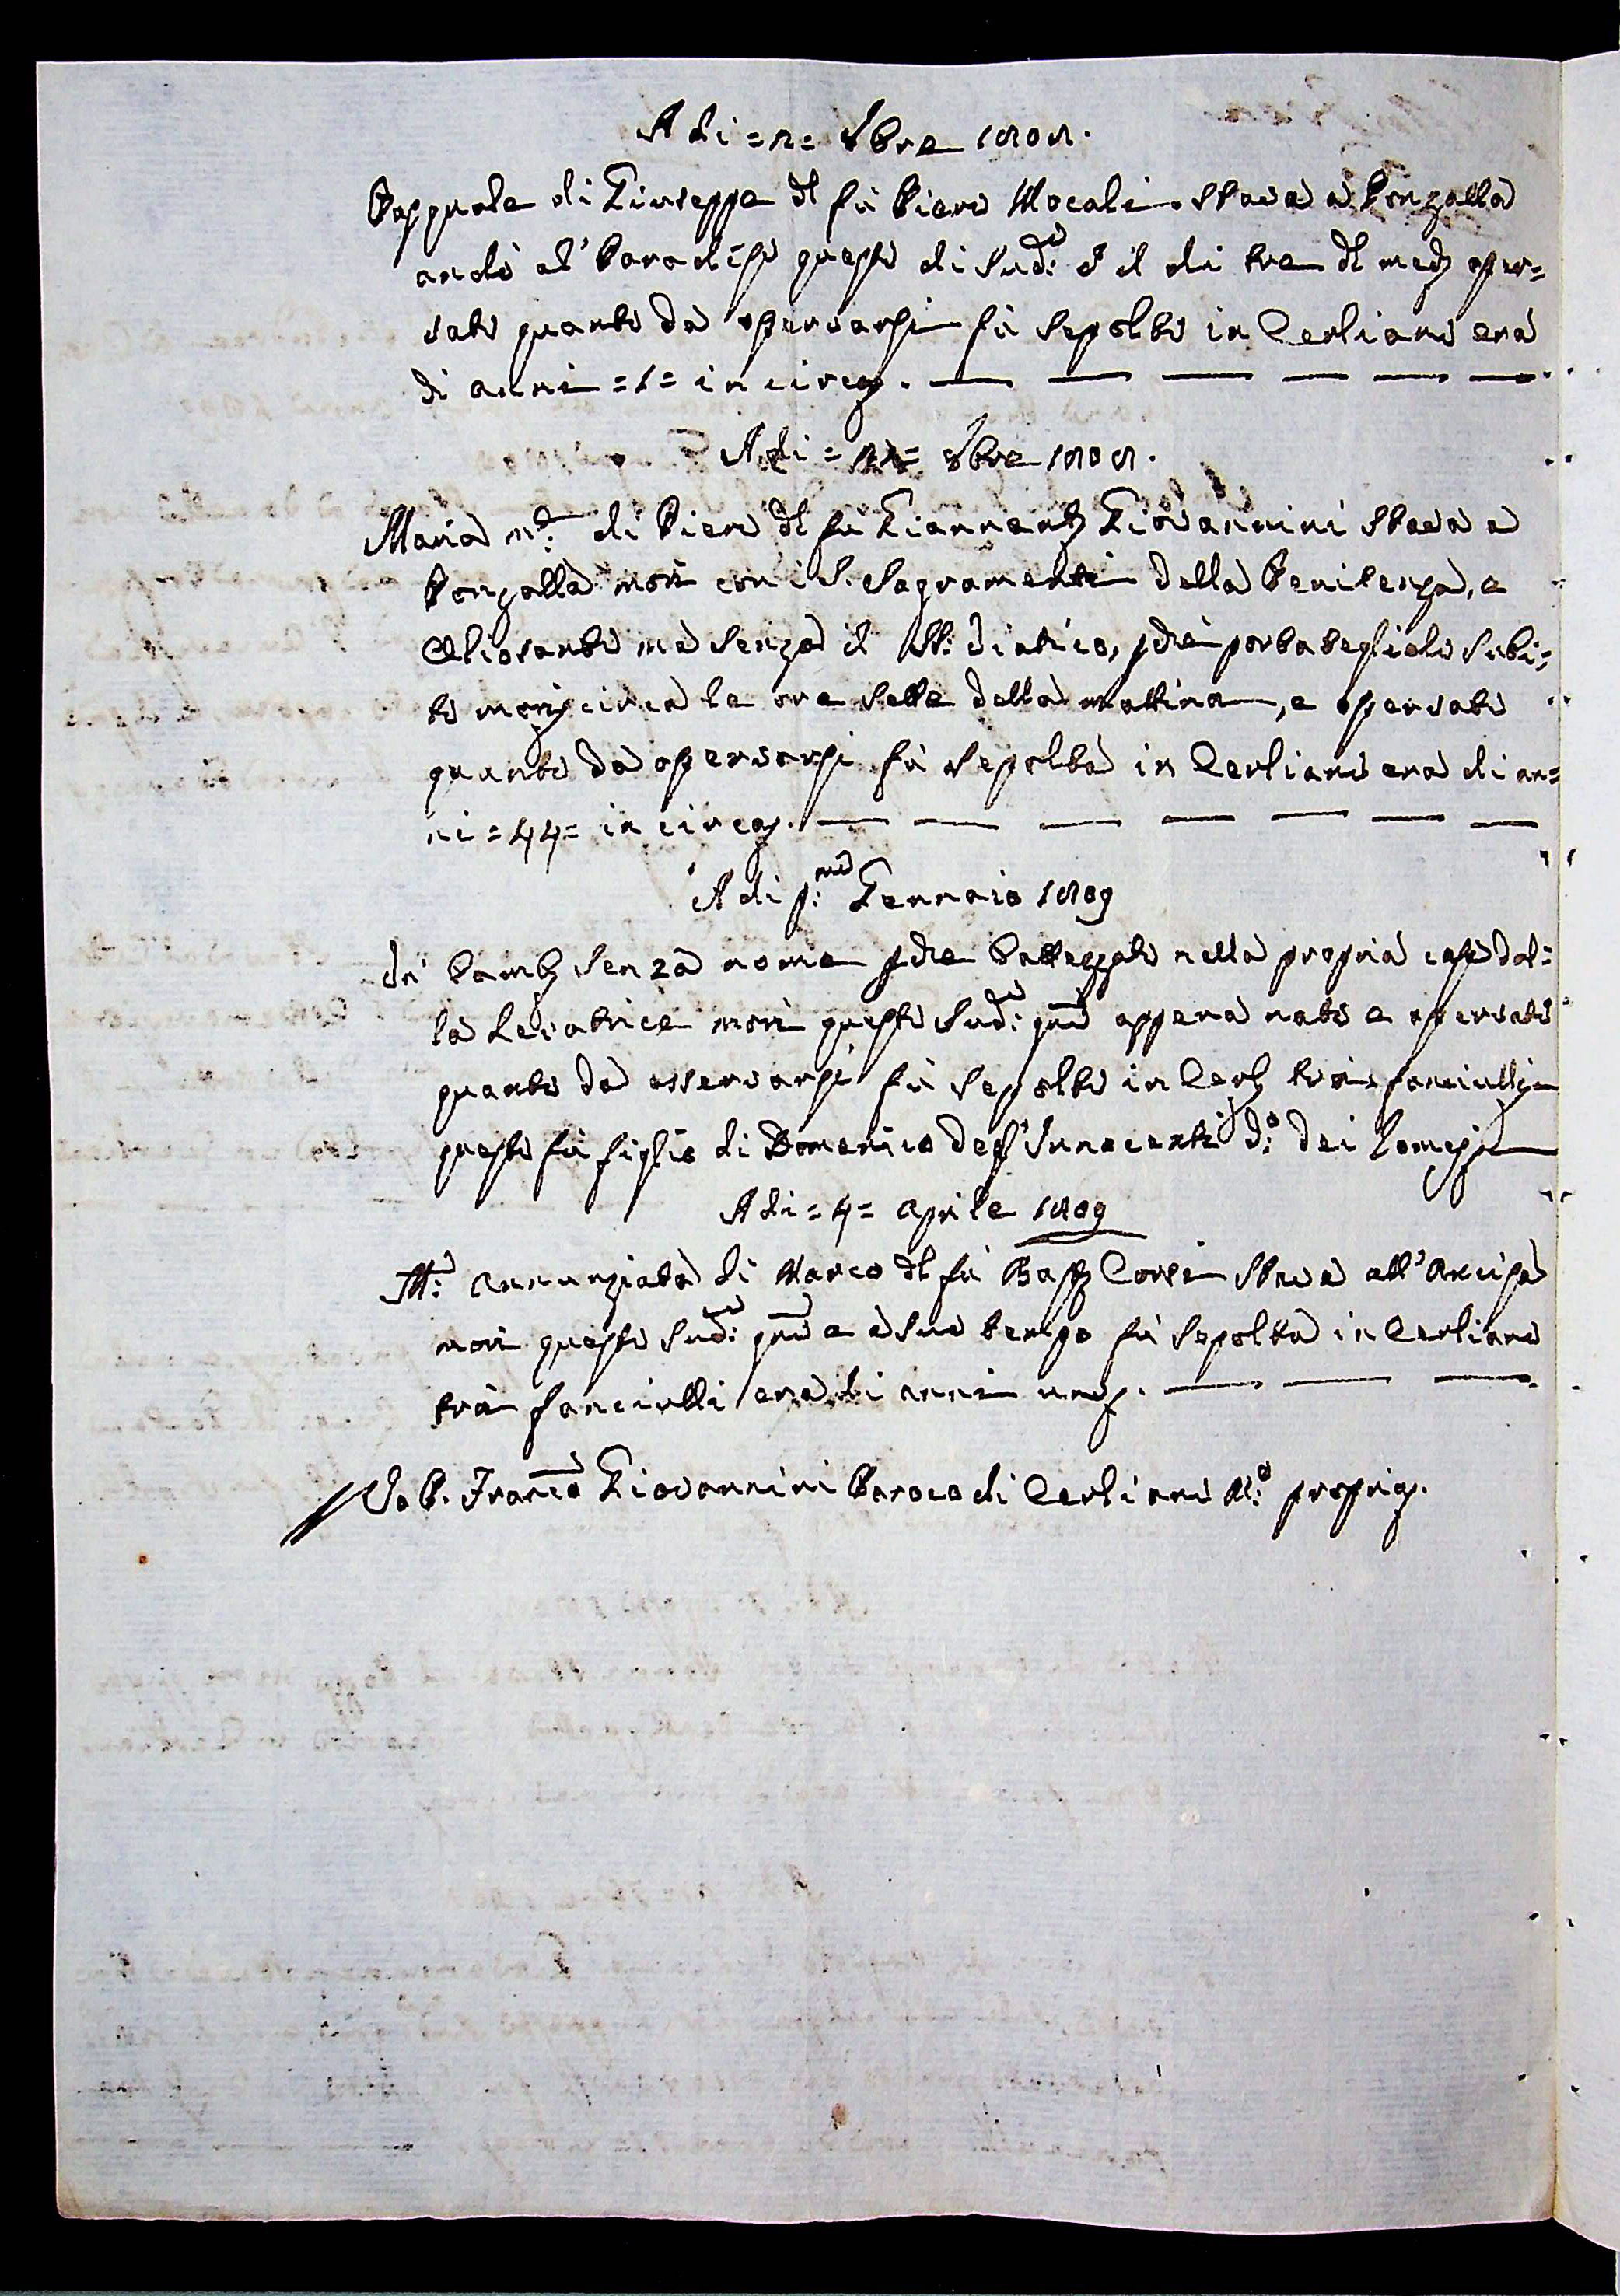 Adi =2= 8bre 1808.
Pasquale di Giuseppe dl fù Piero Mocali. Stava a Ponzalla
andò al' Paradiso questo di Sud:o e il di tre dl med osser=
vato quanto da osservarsi fù Sepolto in Cerliano era
di anni =1= in circa.
Adi = = 8bre 1808.
Maria m:e di Piero dl fu Giannant Giovannini Stava a
Ponzalla morì con i S. Sagramenti della Penitenza, e
Oliosanto ma senza il SS: Viatico, pchè portategliolo subi=
to morì circa le ore Sette della mattina, e osservato
quanto da osservarsi fù Sepolta in Cerliano era di an=
ni =44= in circa.
Adi p:mo Gennaio 1809
Un' Bamb Senza nome pchè Battezzato nella propria casa dal=
la Levatrice morì questo Sud:o gno appena nato e osservato
quanto da osservarsi fù Sepolto in Cerl trà fanciulli
questo fù figlio di Domenico degl'Innocenti d:o dei
Adi =4= Aprile 1809
M:a Annunziata di Marco dl fù Bast Corsi Stava all'Ancisa
morì questo Sud:o gno e à suo tempo fù Sepolta in Cerliano
trà fanciulli era di anni uno.
Io P. Franco Giovannini Paroco di Cerliano M:o propria.